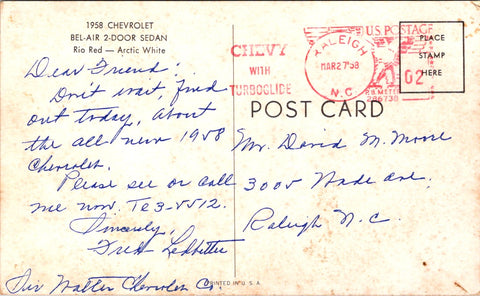 1958 CHEVROLET
BEL-AIR 2-DOOR SEDAN
Rio Red — Arctic White
Dear Friend:
Don't wait, find
out today, about
the all new 1958
Chevrolet.
Please see or call
me now. Te3-5512.
Sincerely,
Fred Ledbetter
Sir Walter Chevrolet Co.
CHEVY
WITH
TURBOGLIDE
RALEIGH
MAR 27 '58
N.C.
U.S. POSTAGE
02
P.B. METER
226738
PLACE
STAMP
HERE
POST CARD
Mr. David M. Moore
3005 Wade Ave.
Raleigh N.C.
PRINTED IN U.S.A.